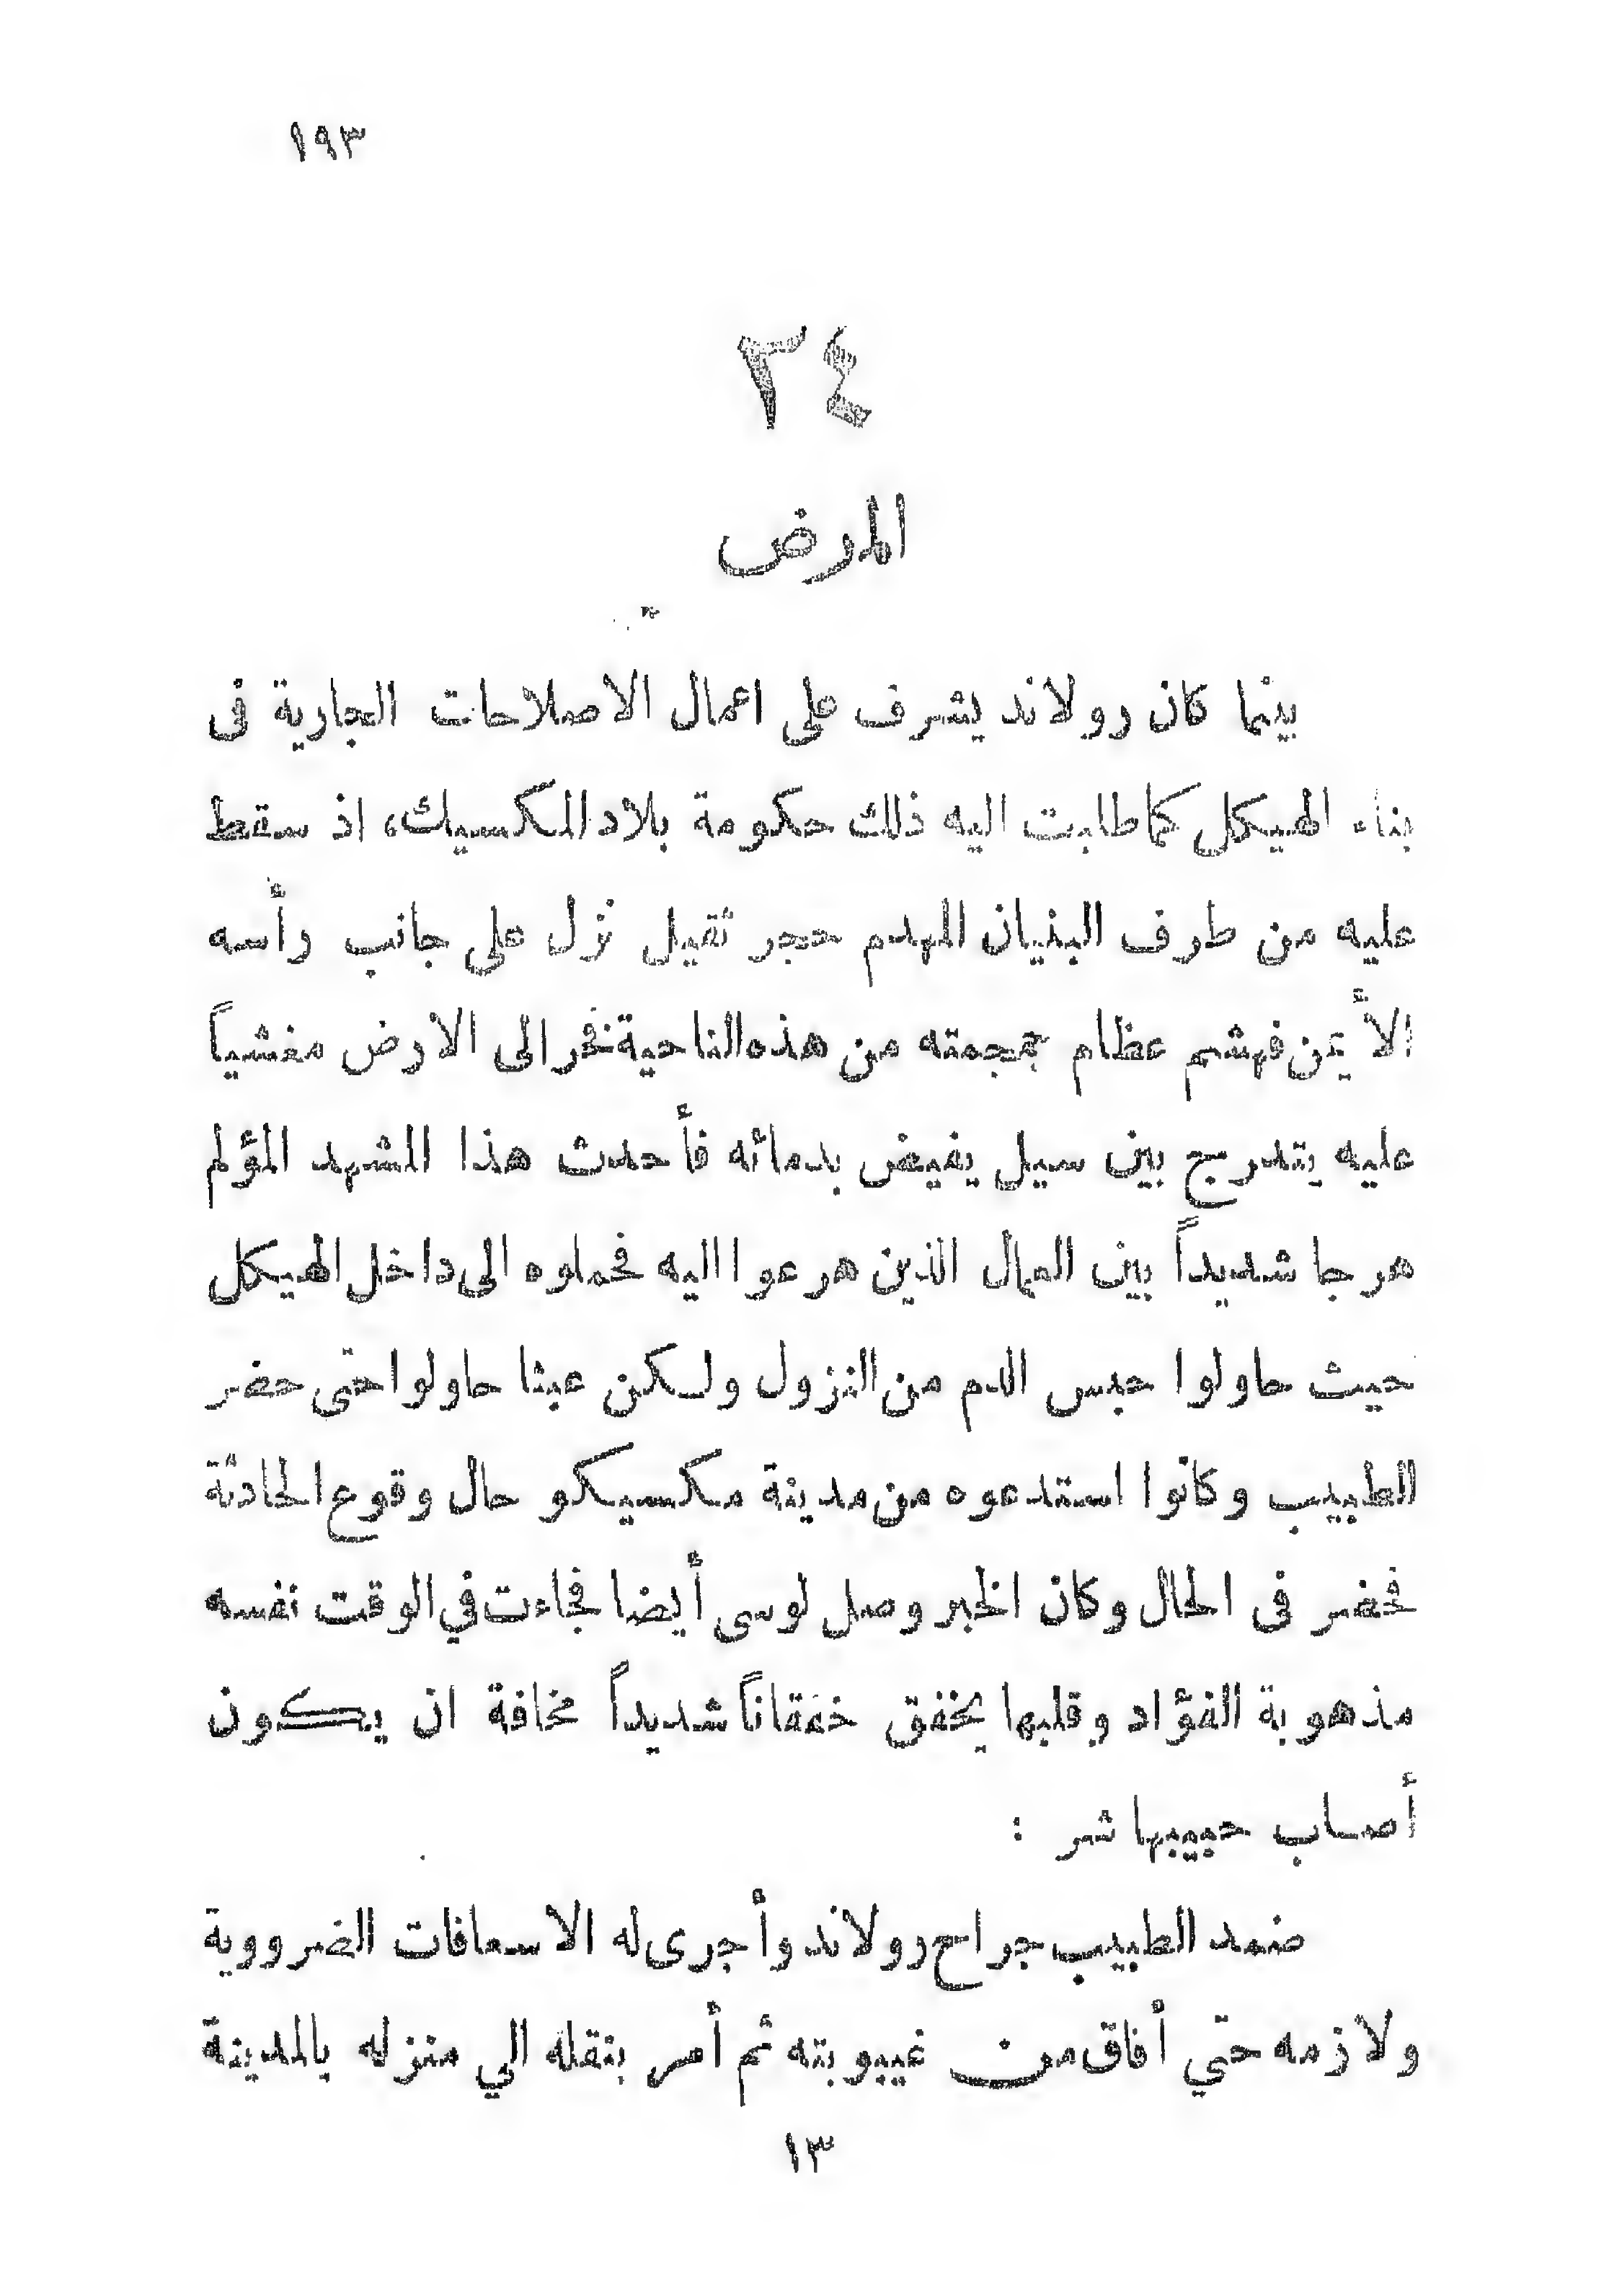 ١٩٣
٣٤
المرض
بينما كان رولاند يشرف على اعمال الاصلاحات الجارية فى
بناء الهيكل كما طلبت اليه ذلك حكومة بلاد المكسيك، اذ سقط
عليه من طرف البنيان المهدم حجر ثقيل نزل على جانب رأسه
الأيمن فهشم عظام جمجمته من هذه الناحية فخر الى الارض مغشياً
عليه يتدرج بين سيل يفيض بدمائه فأحدث هذا المشهد المؤلم
هرجا شديداً بين العمال الذين هرعوا اليه فحملوه الى داخل الهيكل
حيث حاولوا حبس الدم من النزول ولكن عبثا حاولوا حتى حضر
الطبيب وكانوا استدعوه من مدينة مكسيكو حال وقوع الحادثة
فحضر فى الحال وكان الخبر وصل لوسى أيضا فجاءت في الوقت نفسه
مذهوبة الفؤاد وقلبها يخفق خفقاناً شديداً مخافة ان يكون
أصاب حبيبها شر :
ضمد الطبيب جراح رولاند وأجرى له الاسعافات الضرووية
ولازمه حتي أفاق من غيبوبته ثم أمر بنقله الي منزله بالمدينة
١٣